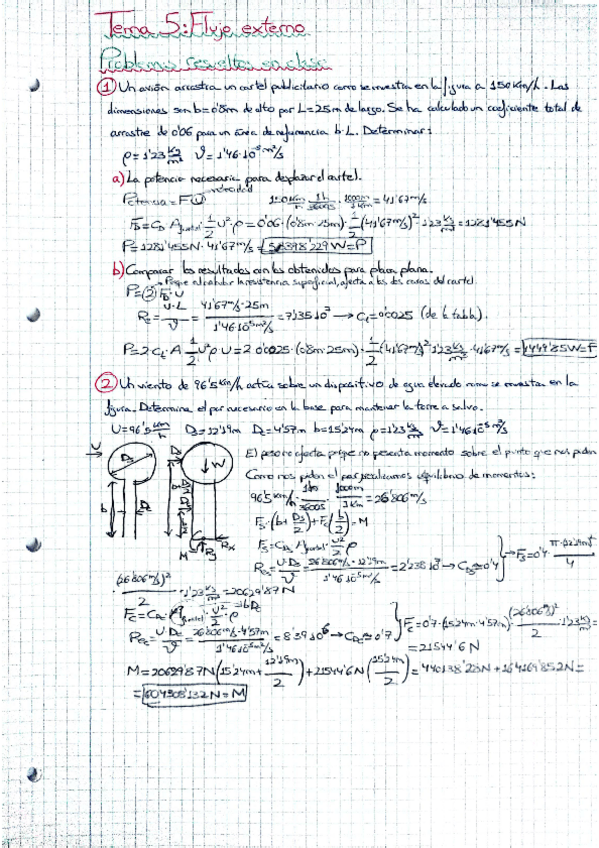 Tema 5: Flujo externo
Problemas resueltos en clase
① Un avión arrastra un cartel publicitario como se muestra en la figura a 150Km/h. Las
dimensiones son b=0'8m de alto por L=25m de largo. Se ha calculado un coeficiente total de
arrastre de 0'06 para un área de referencia b·L. Determinar:
ρ=1'23 kg/m³ ϑ=1'46·10⁻⁵ m²/s
a) La potencia necesaria para desplazar el cartel.
Potencia = F·U velocidad 150 Km/h · 1h/3600s · 1000m/1Km = 41'67 m/s
F_D = C_D A_frontal · 1/2 U²·ρ = 0'06·(0'8m·25m)· 1/2 (41'67 m/s)² 1'23 kg/m³ = 1281'455N
P=1281'455N·41'67 m/s = 53398'229W=P
b) Comparar los resultados con los obtenidos para placa plana.
P=② F_D·U Porque al calcular la resistencia superficial, afecta a las dos caras del cartel
Re = U·L/ϑ = 41'67 m/s · 25m / 1'46·10⁻⁵ m²/s = 7'135·10⁷ → C_f=0'0025 (de la tabla).
P=2 C_f·A· 1/2 U²ρ U = 2·0'0025·(0'8m·25m)· 1/2 (41'67 m/s)² 1'23 kg/m³ · 41'67 m/s = 4449'85W=P
② Un viento de 96'5 Km/h actúa sobre un dispositivo de agua elevado como se muestra en la
figura. Determine el par necesario en la base para mantener la torre a salvo.
U=96'5 Km/h D_s=12'19m D_c=4'57m b=15'24m ρ=1'23 kg/m³ ϑ=1'46·10⁻⁵ m²/s
El peso no afecta porque no presenta momento sobre el punto que nos piden
Como nos piden el par, realizamos equilibrio de momentos:
96'5 Km/h · 1h/3600s · 1000m/1Km = 26'806 m/s
F_s·(b+ D_s/2)+F_c(b/2)=M
U D_s D_c b W M R_y R_x
F_s=C_Ds A_frontal · U²/2 ρ
Re_s= U·D_s/ϑ = 26'806 m/s · 12'19m / 1'46·10⁻⁵ m²/s = 2'238·10⁷ → C_Ds≈0'4 } → F_s=0'4· π·(12'19m)²/4
· (26'806 m/s)²/2 · 1'23 kg/m³ = 20629'87N
F_c=C_Dc·A_frontal · U²/2 · ρ bD_c
Re_c= U·D_c/ϑ = 26'806 m/s · 4'57m / 1'46·10⁻⁵ m²/s = 8'39·10⁶ → C_Dc≈0'7 } F_c=0'7·(15'24m·4'57m)· (26'806 m/s)²/2 · 1'23 kg/m³ =
= 21544'6N
M=20629'87N(15'24m+ 12'19m/2)+21544'6N(15'24m/2)=440138'28N+164169'852N=
= 604308'132N=M